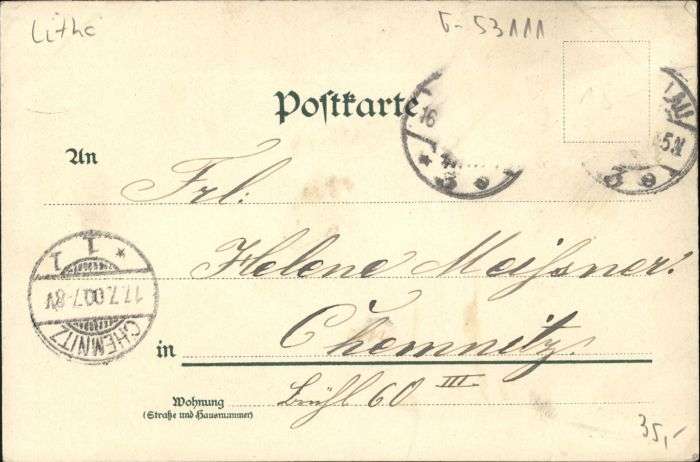 Litho
G-53111
Postkarte
An
Frl:
Helene Meißner.
in Chemnitz.
Wohnung
(Straße und Hausnummer)
Brühl 60 III.
CHEMNITZ
17.7.00.7-8V
1 1
16
5.N
35,-